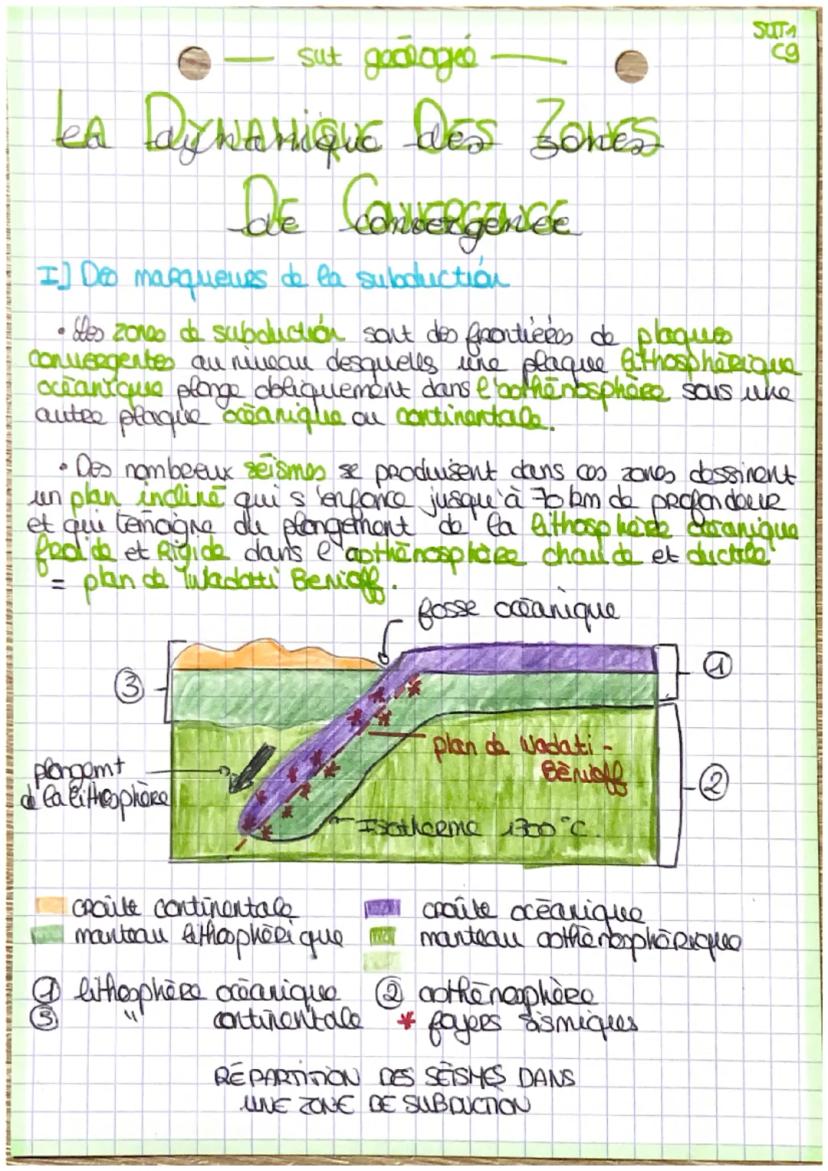 SVT1
C9
svt géologie
La Dynamique Des Zones
De Convergence
I] Des marqueurs de la subduction
• Les zones de subduction sont des frontières de plaques
convergentes au niveau desquelles une plaque lithosphérique
océanique plonge obliquement dans l'asthénosphère sous une
autre plaque océanique ou continentale.
• Des nombreux séismes se produisent dans ces zones dessinent
un plan incliné qui s'enfonce jusqu'à 70 km de profondeur
et qui témoigne du plongement de la lithosphère océanique
froide et rigide dans l'asthénosphère chaude et ductile
= plan de Wadatti Benioff.
fosse océanique
③
①
plan de Wadati-
Bénioff
plongemt
d la lithosphère
②
Isotherme 1300°C.
croûte continentale
croûte océanique
manteau lithosphérique
manteau asthénosphérique
① lithosphère océanique
② asthénosphère
③ " continentale
* foyers sismiques
RÉPARTITION DES SÉISMES DANS
UNE ZONE DE SUBDUCTION